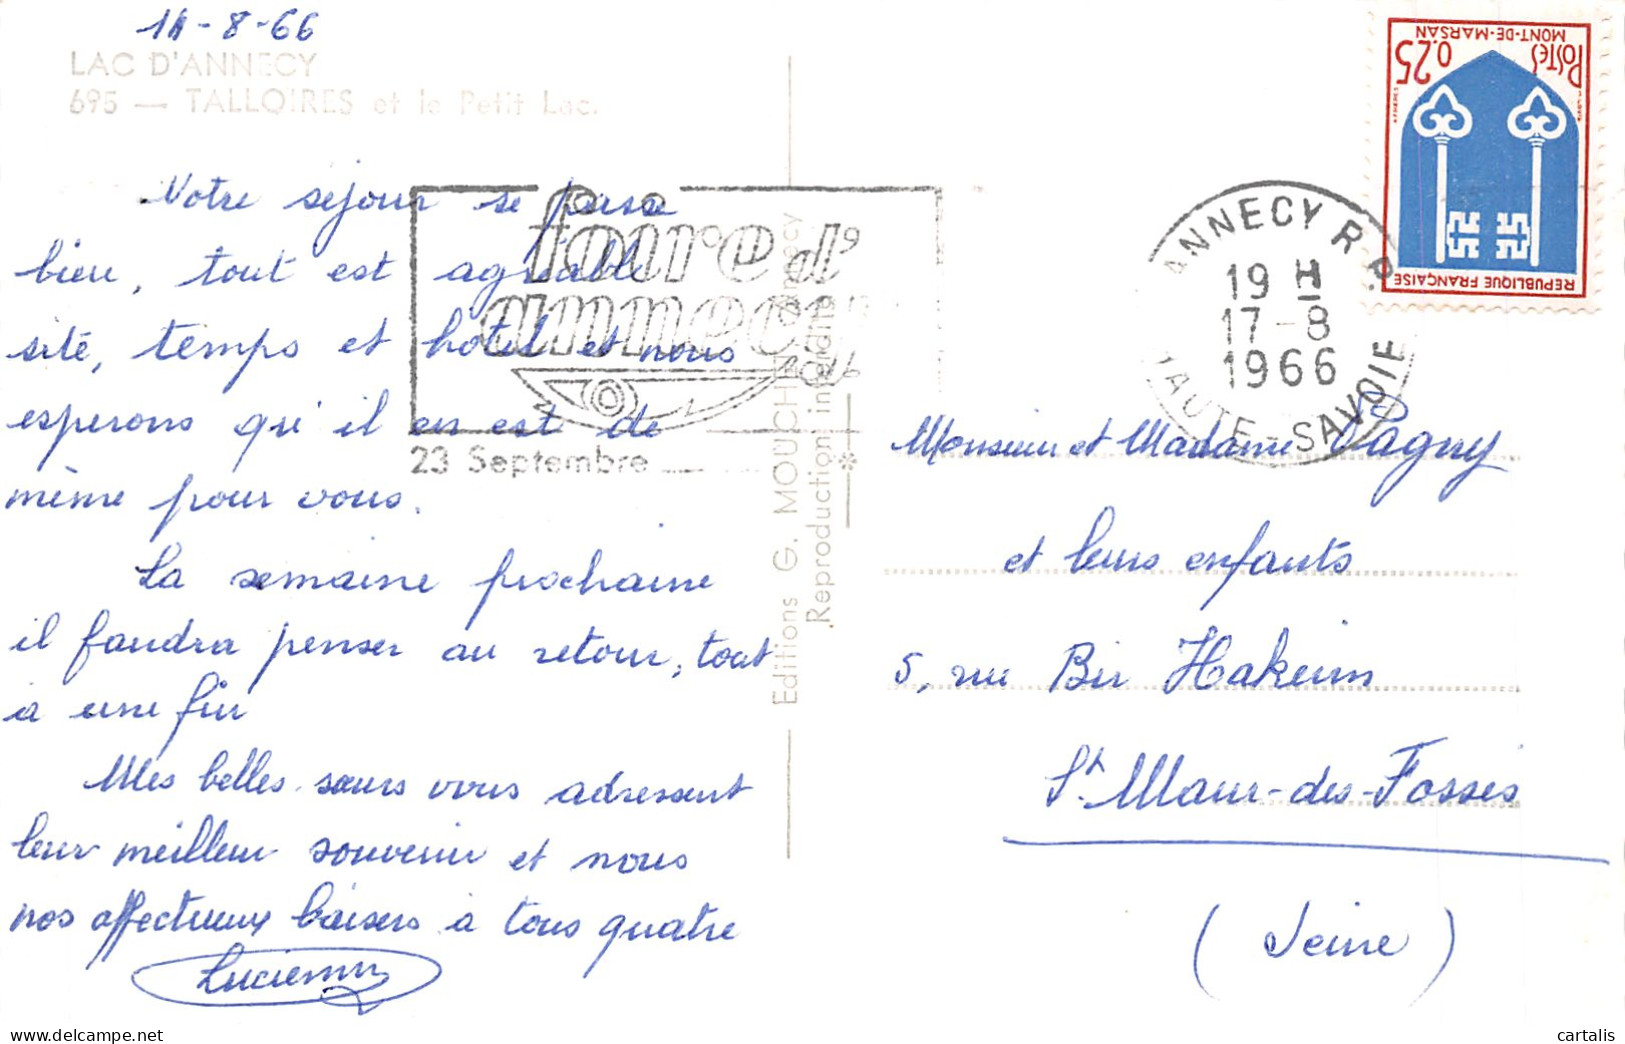 14-8-66
LAC D'ANNECY
695 — TALLOIRES et le Petit Lac.
Votre séjour se passe
bien, tout est agréable
sité, temps et hotel et nous
esperons qu'il en est de
même pour vous.
La semaine prochaine
il faudra penser au retour, tout
a une fin
Mes belles sœurs vous adressent
leur meilleur souvenir et nous
nos affectueux baisers à tous quatre
Lucienne
foire d'
annecy
23 Septembre
Editions G. MOUCHET Annecy
Reproduction interdite
ANNECY R.P.
19 H
17-8
1966
HAUTE-SAVOIE
POSTES
0.25
MONT-DE-MARSAN
REPUBLIQUE FRANÇAISE
Monsieur et Madame Pagny
et leurs enfants
5, rue Bir Hakeim
St Maur-des-Fossés
(Seine)
cartalis